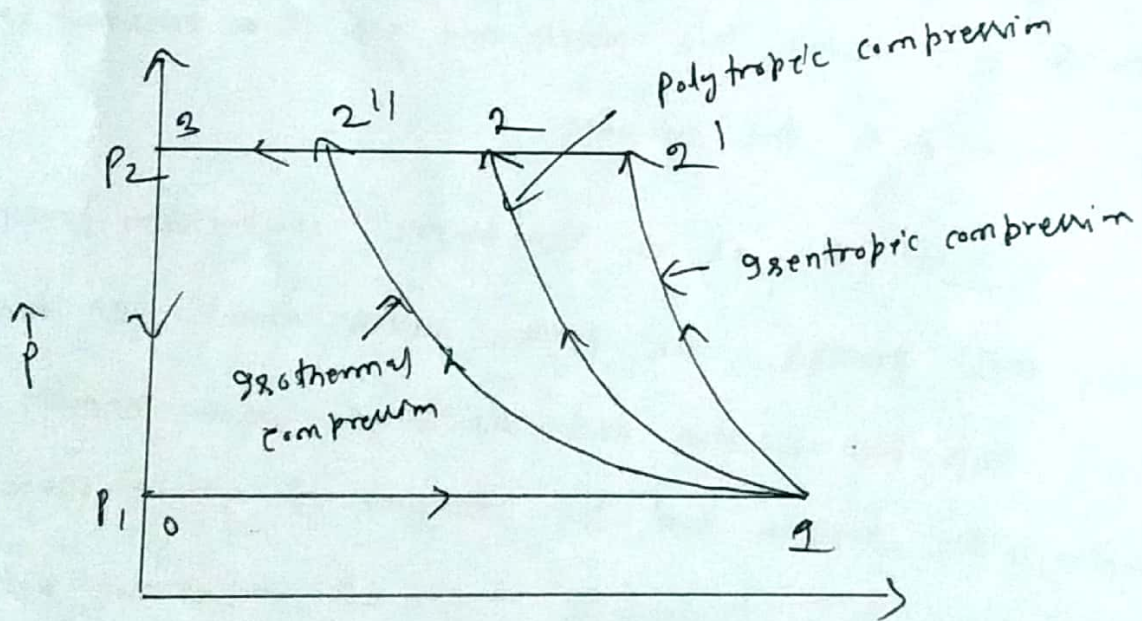 Polytropic compression
3
2''
2
2'
P2
Isentropic compression
↑
P
Isothermal
compression
P1
0
1